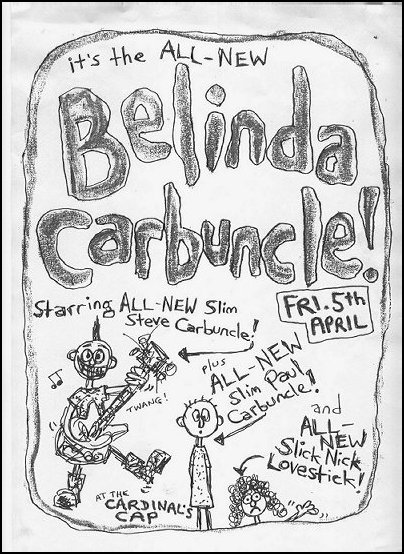 it's the ALL-NEW
Belinda
Carbuncle!
Starring ALL-NEW Slim
Steve Carbuncle!
FRI. 5th
APRIL
plus
ALL-NEW
Slim Paul
Carbuncle!
TWANG!
and
ALL-
NEW
Slick Nick
Lovestick!
AT THE
CARDINAL'S
CAP